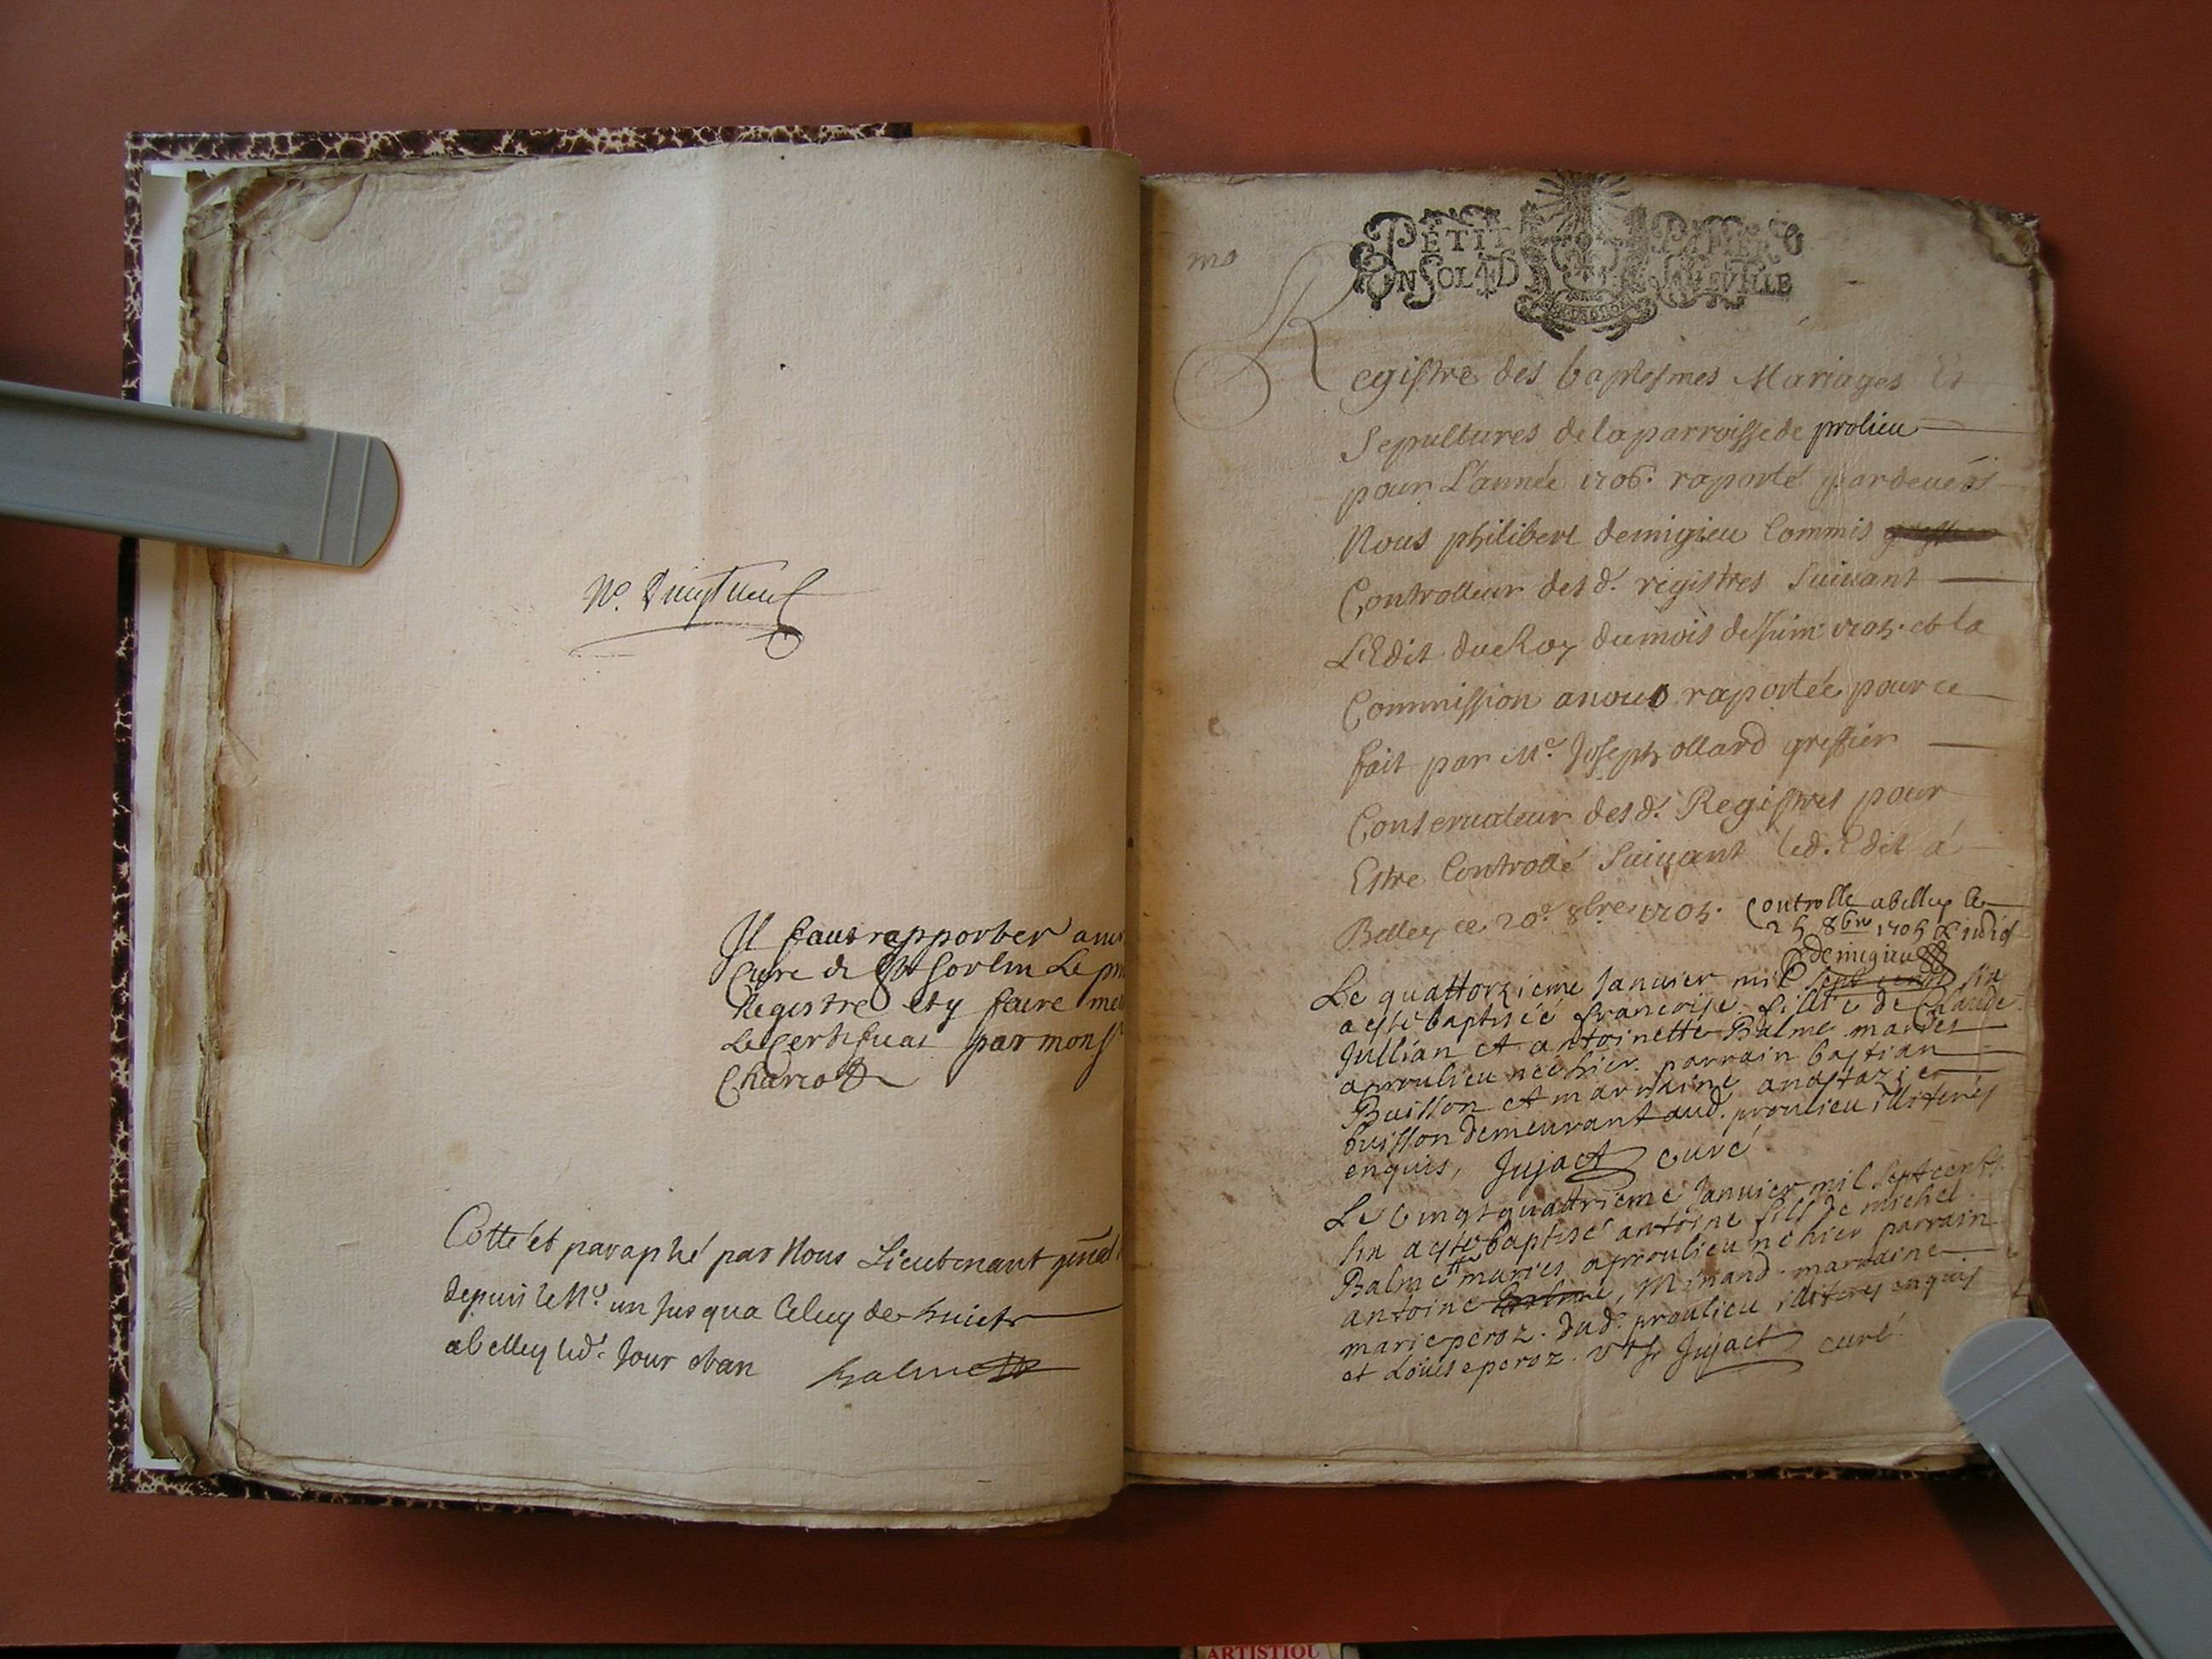 No. Vingtneuf
Il faut rapporter a mr
Cure de St Sorlin Le
Registre et y faire
Le Certificat par monsr
Cotté et paraphé par Nous Lieutenant gñal
depuis le No. un Jusqua Celuy de huict
abelley led. Jour et an
PETIT PAPIER
UN SOL 4 D LA FEVILLE
Registre des baptesmes Mariages Et
Sepultures de la parroisse de prolieu
pour L'année 1706. raporté pardevers
Nous philibert demigieu Commis
Controlleur des d. registres Suivant
L'Edit du Roy du mois de Juin 1705. et la
Commission a nous raportée pour ce
fait par Me. Joseph ollard greffier
Conservateur des d. Registres pour
Estre Controllé Suivant led. Edit á
Belley ce 20e. 8bre 1705. Controlle abelley le
25 8bre 1705
Demigieu
Le quattorzieme Janvier mil sept cents six
a esté baptisée francoise fillie de Claude
Jullian et antoinette Balme mariés
a proulieu née hier. parrain bastian
Buisson et marraine anastazie
buisson demeurant aud. proulieu illiterés
enquis, Jujact curé
Le vingt quattrieme Janvier mil sept cents
six a esté baptisé antoine fils de michel
Balmett mariés a proulieu né hier parrain
antoine Minand. marraine
marie peroz. dud. proulieu illiterés enquis
et Louise peroz. Jujact curé
ARTISTIQU